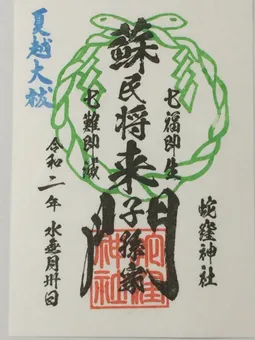 蛇窪神社
七福即生
蘇民将来子孫家門
七難即滅
令和二年 水無月卅日
夏越大祓
蛇窪
神社